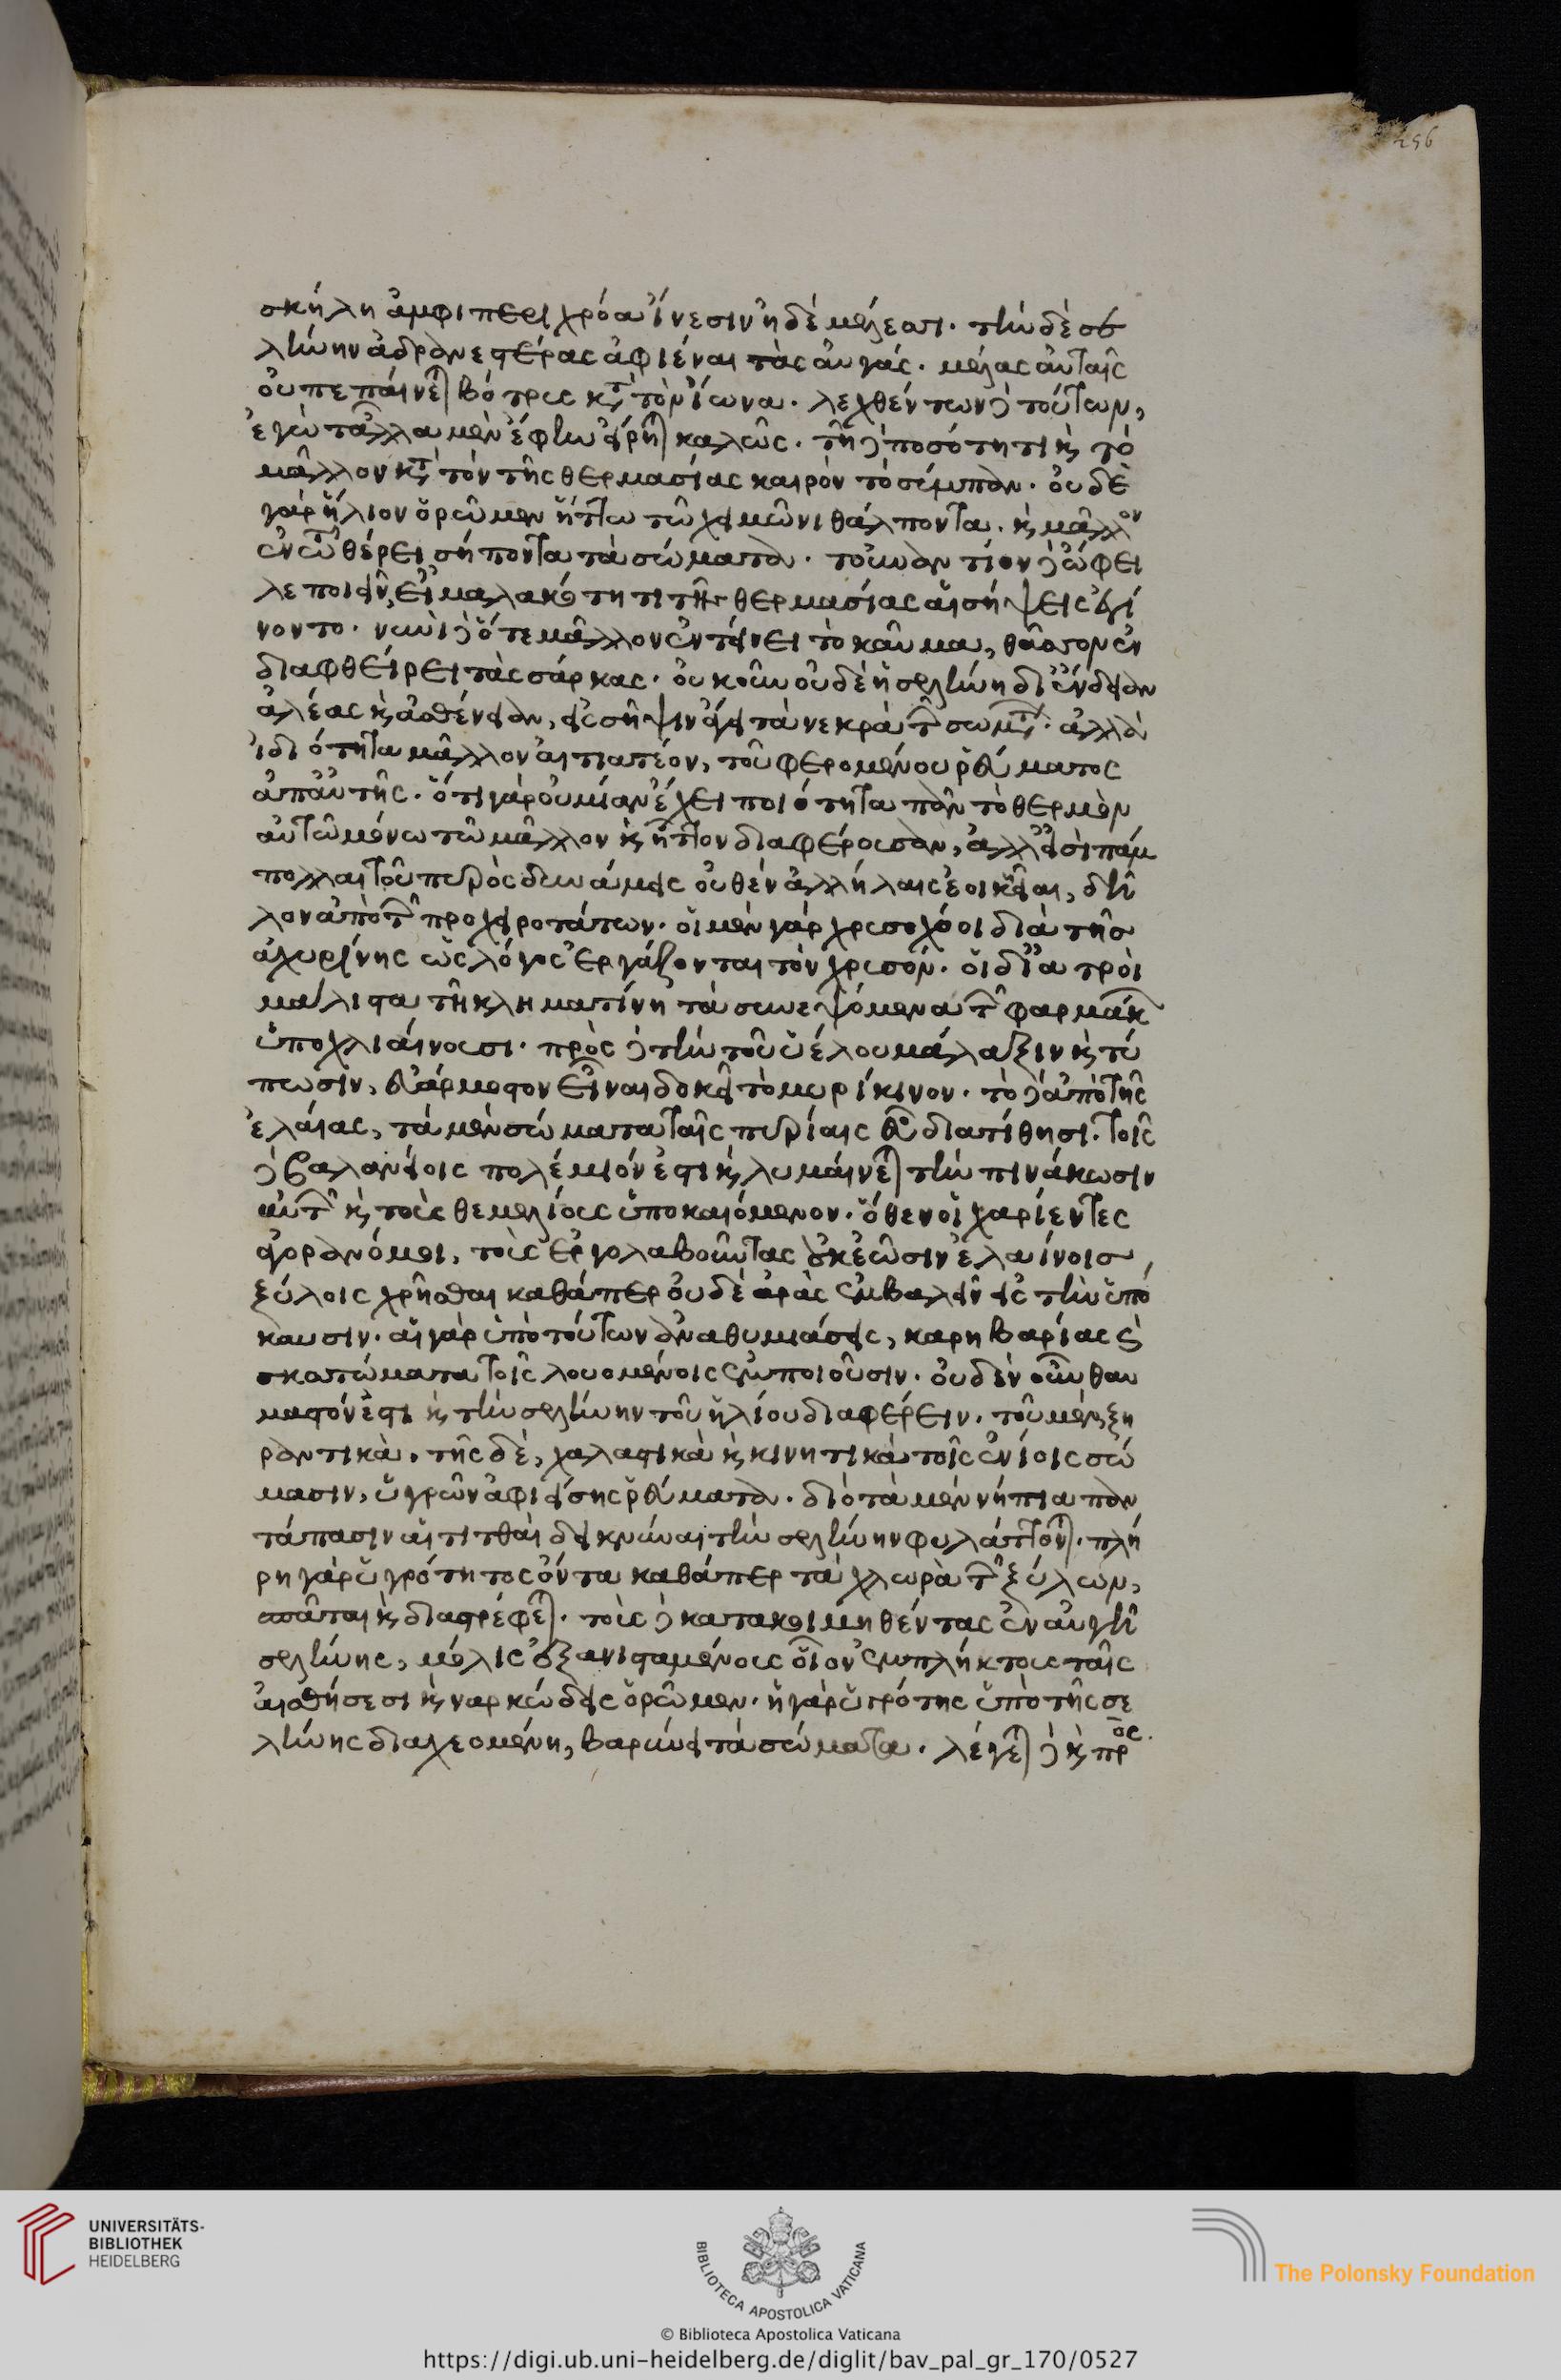 256
σκήλη ἀμφιπερι χρόα ἵνεσιν ἠδὲ μέλεσσι. τὴν δὲ σε
λήνην ἀδρανεστέρας ἀφιέναι τὰς αὐγάς. μέλας αὐταῖς
οὐ πεπαίνεται βότρυς κατὰ τὸν ἴωνα. λεχθέντων δὲ τούτων,
ἐγὼ τἄλλα μὲν ἔφην εἰρῆσθαι καλῶς. τῇ δὲ ποσότητι καὶ τὸ
μᾶλλον κατὰ τὸν τῆς θερμασίας καιρὸν τὸ σύμπαν. οὐδὲ
γὰρ ἥλιον ὁρῶμεν ἧττω τῷ χειμῶνι θάλποντα. καὶ μᾶλλον
ἐν τῷ θέρει σήποντα τὰ σώματα. τοὐναντίον δὲ ὤφει
λε ποιεῖν, εἰ μαλακότητι τῆς θερμασίας αἱ σήψεις ἐγί
νοντο. νυνὶ δὲ ὅτε μᾶλλον ἐντείνει τὸ καῦμα, θᾶττον ἐν
διαφθείρει τὰς σάρκας. οὐκοῦν οὐδὲ ἡ σελήνη δι' ἔνδειαν
ἀλέας καὶ ἀσθένειαν, εἰς σῆψιν ἄγει τὰ νεκρὰ τῶν σωμάτων. ἀλλὰ
ἰδιότητα μᾶλλον αἰτιατέον, τοῦ φερομένου ῥεύματος
ἀπ' αὐτῆς. ὅτι γὰρ οὐ μίαν ἔχει ποιότητα πᾶν τὸ θερμὸν
αὐτῷ μόνω τῷ μᾶλλον καὶ ἧττον διαφέρουσαν, ἀλλ' εἰσὶ πάμ
πολλαι τοῦ πυρὸς δυνάμεις οὐθὲν ἀλλήλαις ἐοικυῖαι, δῆ
λον ἀπὸ τῶν προχειροτάτων. οἱ μὲν γὰρ χρυσοχόοι διὰ τῆς
ἀχυρίνης ὡς λόγος ἐργάζονται τὸν χρυσόν. οἱ δ' ἰατροὶ
μάλιστα τῇ κληματίνη τὰ συνεψόμενα τῶν φαρμάκων
ὑποχλιαίνουσι. πρὸς δὲ τὴν τοῦ ὑέλου μάλαξιν καὶ τύ
πωσιν, εὐάρμοστον εἶναι δοκεῖ τὸ μυρίκινον. τὸ δὲ ἀπὸ τῆς
ἐλαίας, τὰ μὲν σώματα ταῖς πυρίαις εὖ διατίθησι. τοῖς
δὲ βαλανείοις πολέμιόν ἐστι καὶ λυμαίνεται τὴν πινάκωσιν
αὐτῶν καὶ τοὺς θεμελίους ὑποκαιόμενον. ὅθεν οἱ χαρίεντες
ἀγορανόμοι, τοὺς ἐργολαβοῦντας οὐκ ἐῶσιν ἐλαίνοισ
ξύλοις χρῆσθαι καθάπερ οὐδὲ αἴρας ἐμβαλεῖν εἰς τὴν ὑπό
καυσιν. αἱ γὰρ ὑπὸ τούτων ἀναθυμιάσεις, καρηβαρίας καὶ
σκοτώματα τοῖς λουομένοις ἐμποιοῦσιν. οὐδὲν οὖν θαυ
μαστόν ἐστι καὶ τὴν σελήνην τοῦ ἡλίου διαφέρειν. τοῦ μὲν ξη
ραντικὰ. τῆς δὲ, χαλαστικὰ καὶ κινητικὰ τοῖς ἐνίοις σώ
μασιν, ὑγρῶν ἀφιείσης ῥεύματα. διὸ τὰ μὲν νήπια παν
τάπασιν αἱ τιτθαὶ δεικνύναι τὴν σελήνην φυλάττονται. πλή
ρη γὰρ ὑγρότητος ὄντα καθάπερ τὰ χλωρὰ τῶν ξύλων,
σπᾶται καὶ διαστρέφεται. τοὺς δὲ κατακοιμηθέντας ἐν αὐγῇ
σελήνης, μόλις ἐξανισταμένους οἷον ἐμπλήκτους ταῖς
αἰσθήσεσι καὶ ναρκώδεις ὁρῶμεν. ἡ γὰρ ὑγρότης ὑπὸ τῆς σε
λήνης διαχεομένη, βαρύνει τὰ σώματα. λέγεται δὲ καὶ πρὸς.
UNIVERSITÄTS-
BIBLIOTHEK
HEIDELBERG
BIBLIOTECA APOSTOLICA VATICANA
The Polonsky Foundation
© Biblioteca Apostolica Vaticana
https://digi.ub.uni-heidelberg.de/diglit/bav_pal_gr_170/0527